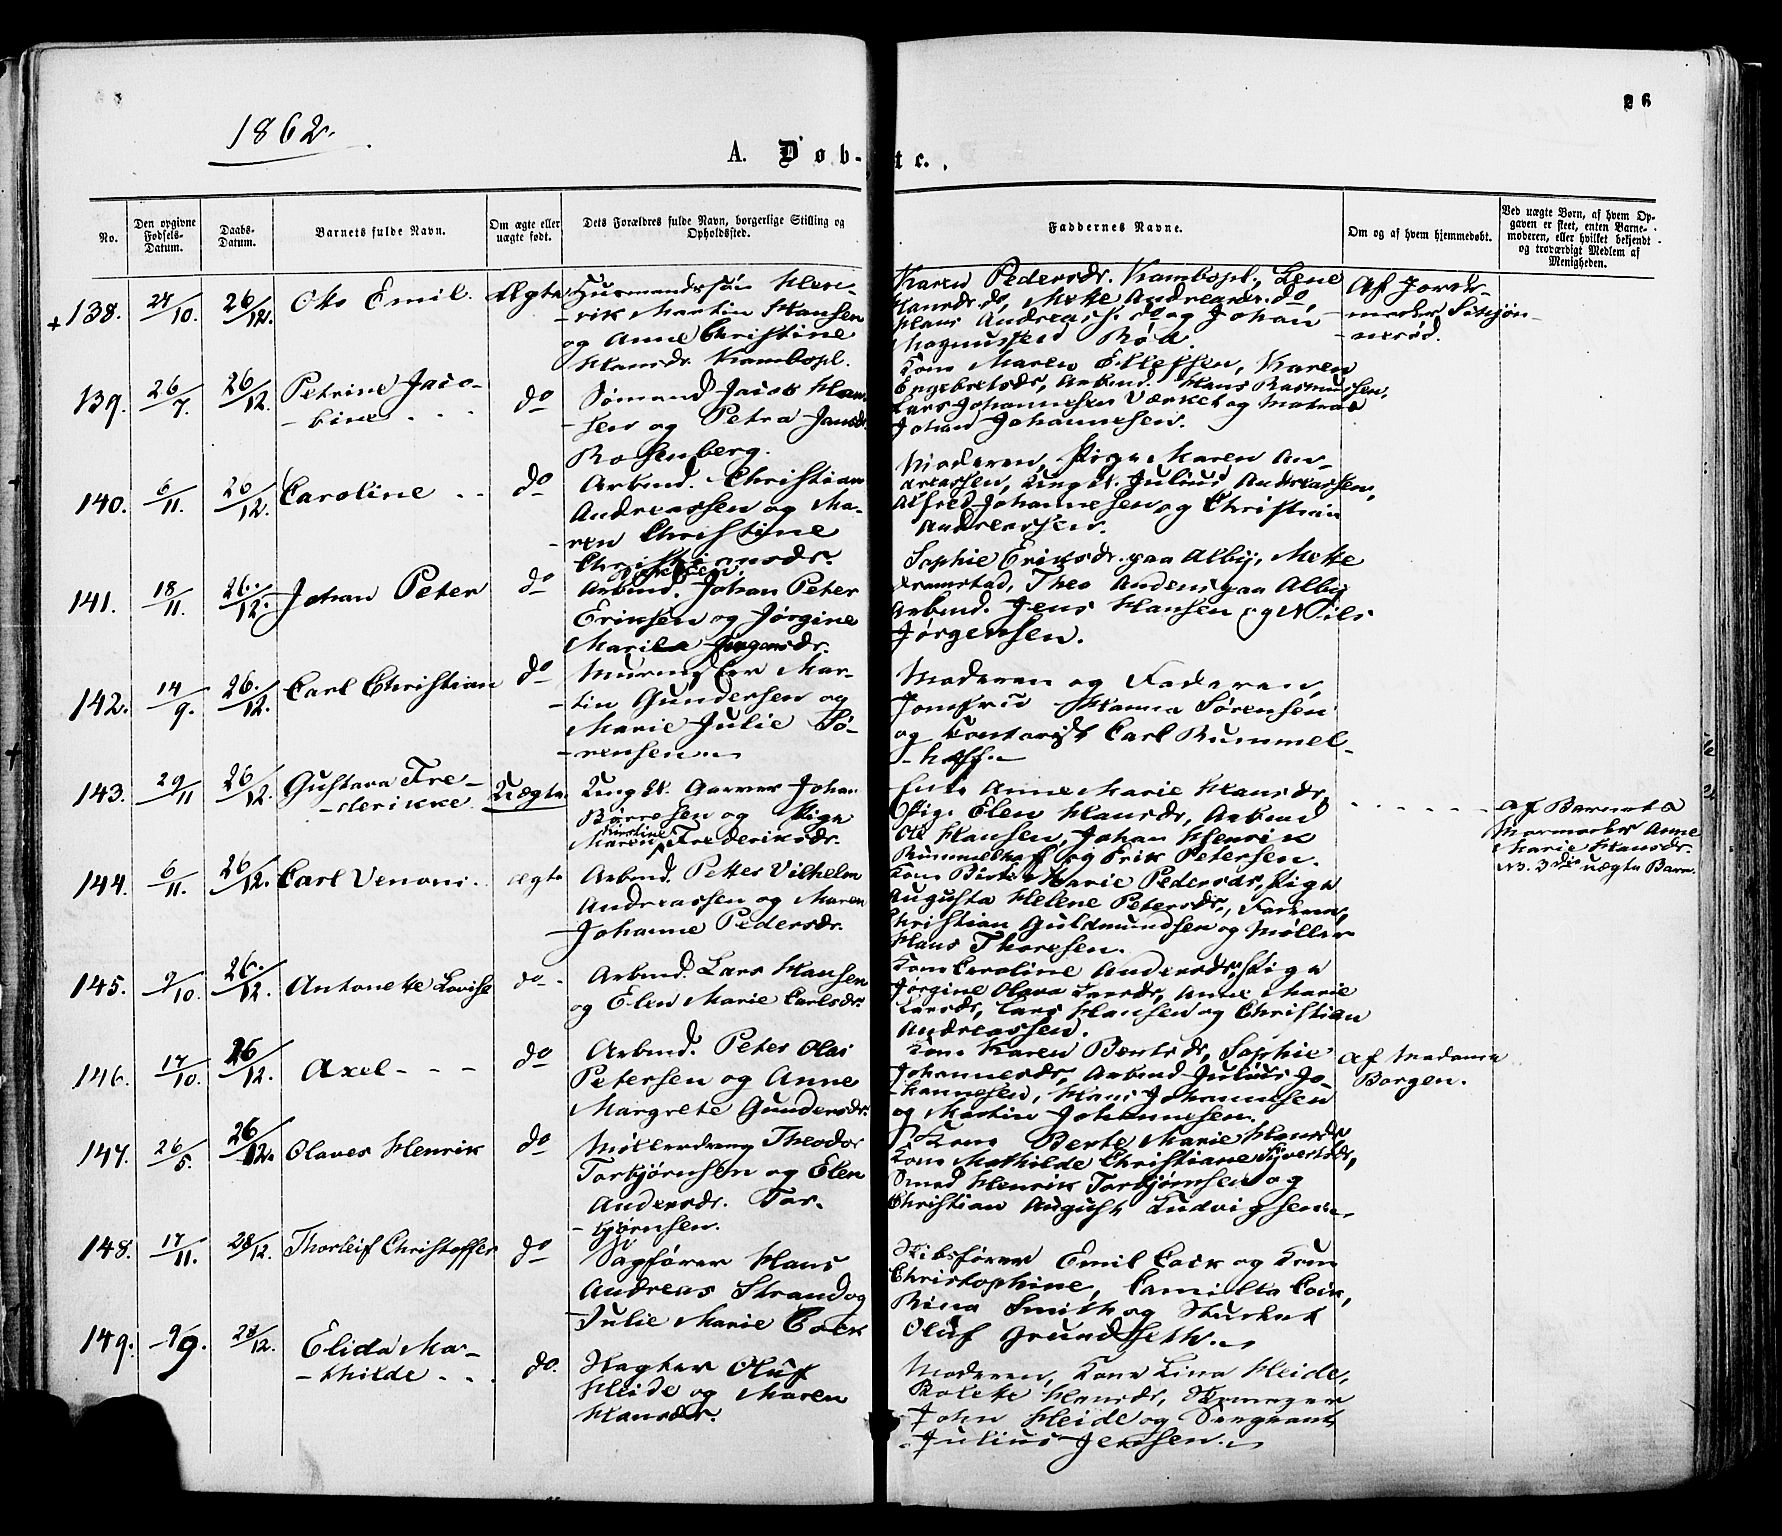 26
1862.
A. Døb-te.
No.
Den opgivne Fødsels-Datum.
Daabs-Datum.
Barnets fulde Navn.
Om ægte eller uægte født.
Dets Forældres fulde Navn, borgerlige Stilling og Opholdssted.
Faddernes Navne.
Om og af hvem hjemmedøbt.
Ved uægte Børn, af hvem Op-
gaven er skeet, enten Barne-
moderen, eller hvilket bekjendt
og troværdigt Medlem af
Menigheden.
+138. 24/10. 26/12. Oto Emil. Ægte
Husmandssøn Hen-
-rik Martin Hansen
og Anne Christine
Hansdr. Kambopl.
Karen Pedersdr. Kambopl., Lene
Hansdr. do, Mette Andreasdr. do,
Hans Andreass. do og Johan
Magnussen Rød.
Af Jorde-
moder
-nerød.
139. 26/7. 26/12. Petrine Jaco-
-bine
do
Sømand Jacob Han-
-sen og Petra Jansdr.
Rosenberg.
Kone Maren Ellefsen, Karen
Engebretsdr, Arbmd. Hans Rasmussen,
Lars Johannesen Værket og Matros
Johan Johannesen.
140. 6/11. 26/12. Caroline
do
Arbmd. Christian
Andreassen og Ma-
-ren Christine
Christiansdr.
Moderen, Pige Maren An-
dreassen, Ungk. Julius Andreassen,
Alfred Johannesen og Christian
Andreassen.
141. 18/11. 26/12. Johan Peter
do
Arbmd. Johan Peter
Eriksen og Jørgine
Marie Jørgensdr.
Sophie Eriksdr. paa Alby, Mette
Framstad, Theo Andens. paa Alby
Arbmd. Jens Hansen og Nils
Jørgensen.
142. 14/9. 26/12. Carl Christian
do
Murmester Mar-
-tin Gundersen og
Marie Julie Sø-
-rensen
Moderen og Faderen,
Jomfru Hanna Sørensen
og Contorist Carl Rummel-
-hoff.
143. 29/11 26/12. Gustava Fre-
-derikke
Uægte
Ungk. Garver Johan
Børresen og Pige
Maren Kirstine Frederiksdr.
Enke Anne Marie Hansdr,
Pige Elen Hansdr, Arbmd
Ole Hansen, Johan Henrik
Rummelhoff og Erik Petersen.
af Barnets
Mormoder Anne
Marie Hansdr.
NB. 3die uægte Barn.
144. 6/11. 26/12. Carl Venoni.
ægte
Arbmd. Petter Vilhelm
Andreassen og Maren
Johanne Pedersdr.
Kone Birte Marie Pedersdr, Pige
Augusta Helene Petersdr., Faderen,
Christian Guldmundsen og Møller
Hans Thoresen.
145. 9/10. 26/12. Antonette Lovise
do
Arbmd. Lars Hansen
og Elen Marie Carlsdr.
Kone Caroline Andersdr, Pige
Jørgine Olava Larsdr, Anne Marie
Larsdr, Lars Hansen og Christian
Andreassen.
146. 17/10. 26/12. Axel
do
Arbmd. Peter Olai
Petersen og Anne
Margrete Gundersdr.
Kone Karen Berntsdr, Sophie
Johannesdr, Arbmd Julius Jo-
-hannesen, Hans Johannesen
og Martin Johannesen.
Af Madame
Borgen.
147. 26/5. 26/12. Olaves Henrik
do
Møllerdreng Theodor
Torbjørnsen og Elen
Andersdr. Tor-
-bjørnsen.
Kone Berte Marie Hansdr
Kone Mathilde Christiane Syvertsdr,
Smed Henrik Torbjørnsen og
Christian August Ludvigsen.
148. 17/11. 28/12. Thorleif Christoffer
do
Sagfører Hans
Andreas Strand og
Julie Marie Coik
Skibsfører Emil Coik og Kone
Christophine, Camilla Coik,
Rina Smith og Student
Oluf Grundseth.
149. 9/9. 28/12. Elida Ma-
-thilde
do.
Slagter Oluf
Heide og Maren
Hansdr.
Moderen, Kone Lina Heide,
Bolette Hansdr, Skomager
John Heide og Sergeant
Julius Jensen.